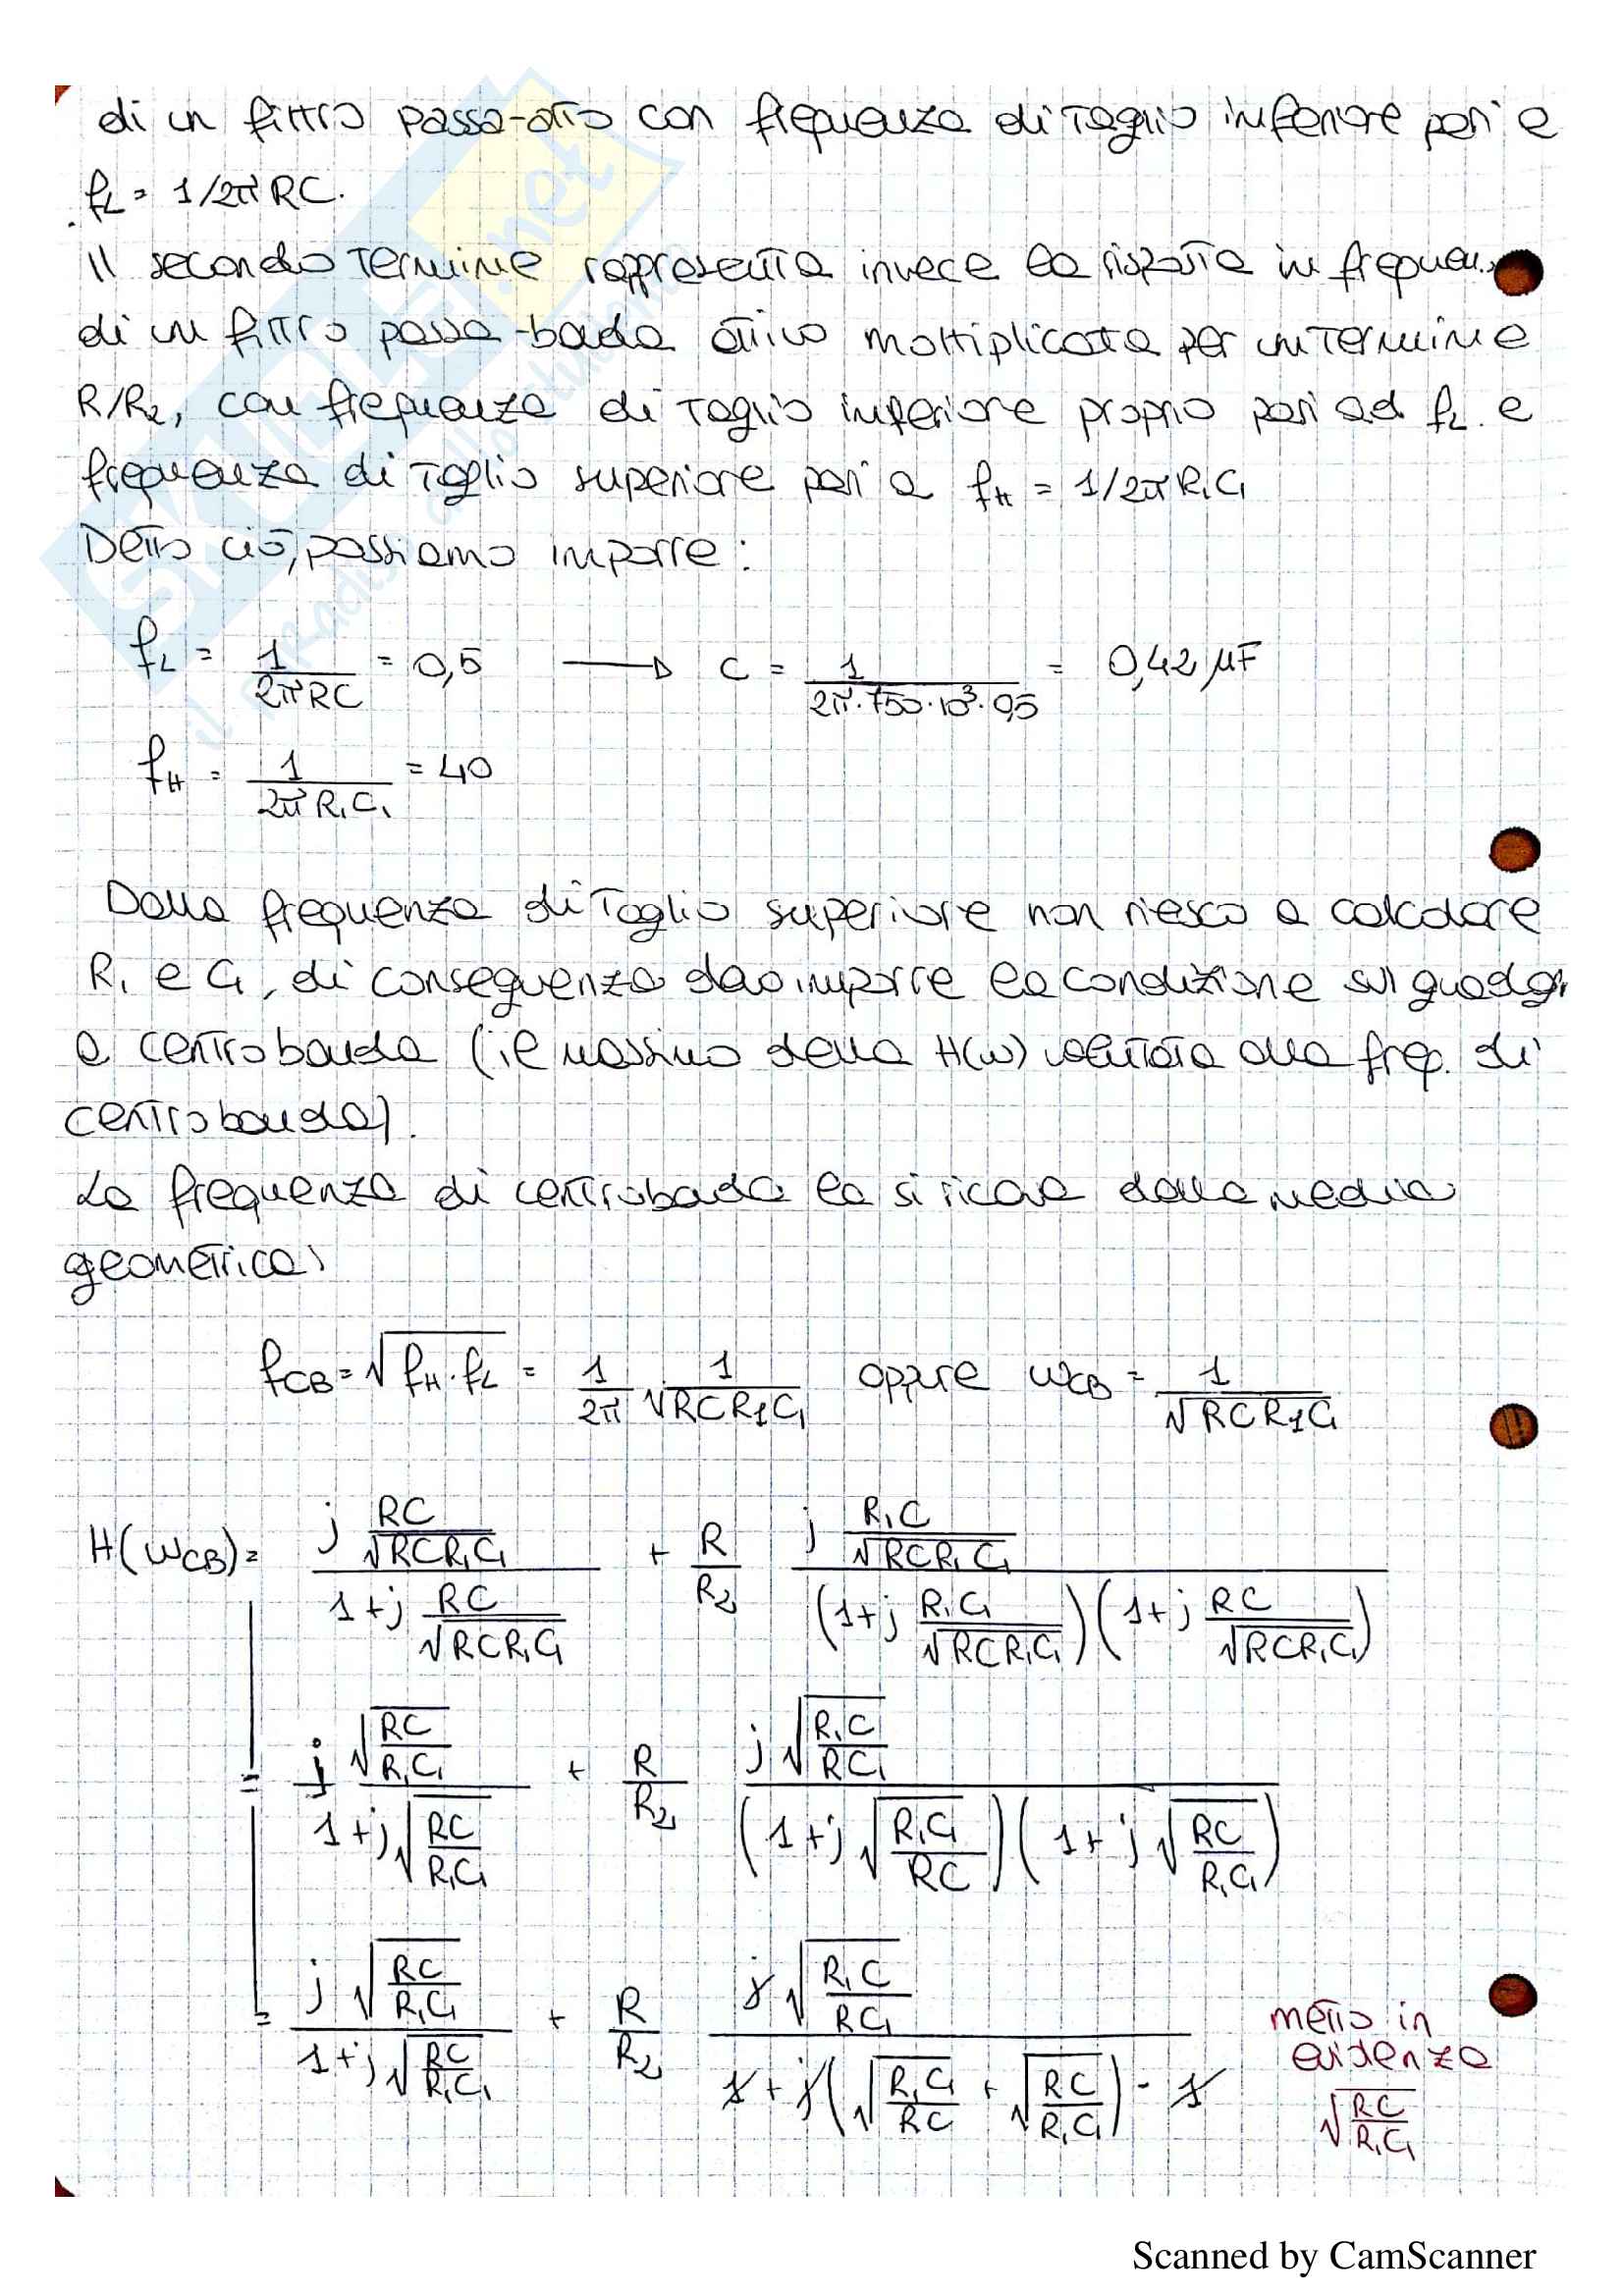 di un filtro passa-alto con frequenza di taglio inferiore pari a
fL = 1/2πRC.
Il secondo termine rappresenta invece la risposta in frequen.
di un filtro passa-banda attivo moltiplicata per un termine
R/R2, con frequenza di taglio inferiore proprio pari ad fL e
frequenza di taglio superiore pari a fH = 1/2πR1C1
Detto ciò, possiamo imporre:
fL = 1/(2πRC) = 0,5 → C = 1/(2π·750·10³·0,5) = 0,42 μF
fH = 1/(2πR1C1) = 40
Dalla frequenza di taglio superiore non riesco a calcolare
R1 e C1, di conseguenza devo imporre la condizione sul guadagn
a centrobanda (il massimo della H(ω) valutata alla freq. di
centrobanda).
La frequenza di centrobanda la si ricava dalla media
geometrica:
fCB = √(fH·fL) = 1/2π 1/√(RCR1C1) oppure ωCB = 1/√(RCR1C1)
H(ωCB) = (j RC/√(RCR1C1))/(1+j RC/√(RCR1C1)) + R/R2 (j R1C/√(RCR1C1))/((1+j R1C1/√(RCR1C1))(1+j RC/√(RCR1C1)))
= (j √(RC/R1C1))/(1+j√(RC/R1C1)) + R/R2 (j√(R1C/RC1))/((1+j√(R1C1/RC))(1+j√(RC/R1C1)))
= (j √(RC/R1C1))/(1+j√(RC/R1C1)) + R/R2 (j√(R1C/RC1))/(1+j(√(R1C1/RC) + √(RC/R1C1)) - 1)
metto in
evidenza
√(RC/R1C1)
SKUOLA.net
il paradiso dello studente
Scanned by CamScanner